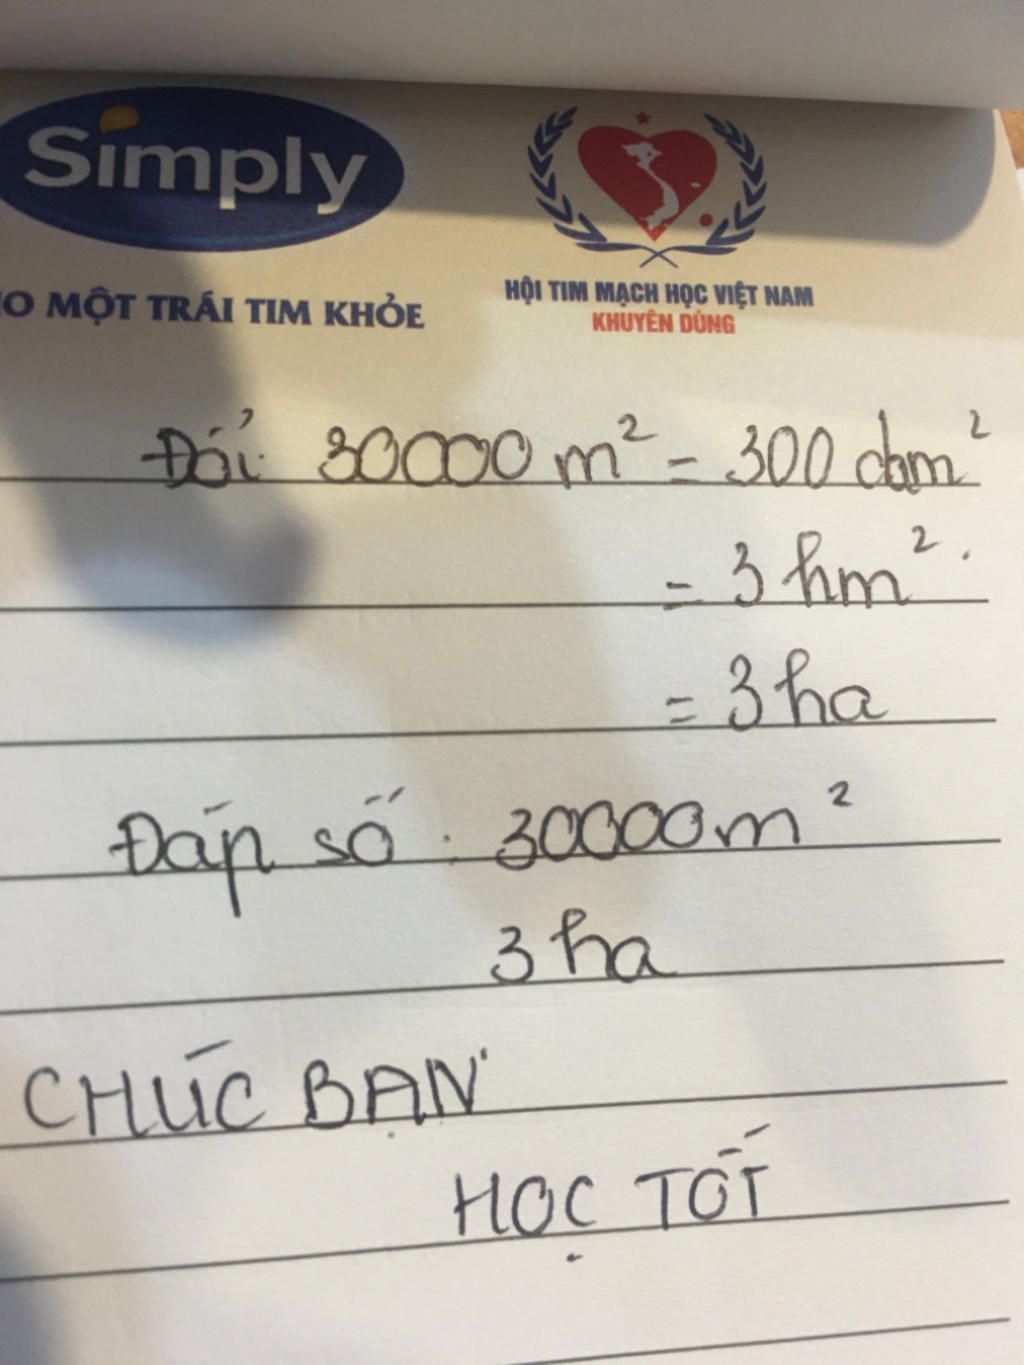 Simply
HO MỘT TRÁI TIM KHỎE
HỘI TIM MẠCH HỌC VIỆT NAM
KHUYÊN DÙNG
Đổi 30000 m² = 300 dam²
= 3 hm².
= 3 ha
Đáp số : 30000m²
3 ha
CHÚC BẠN
HỌC TỐT